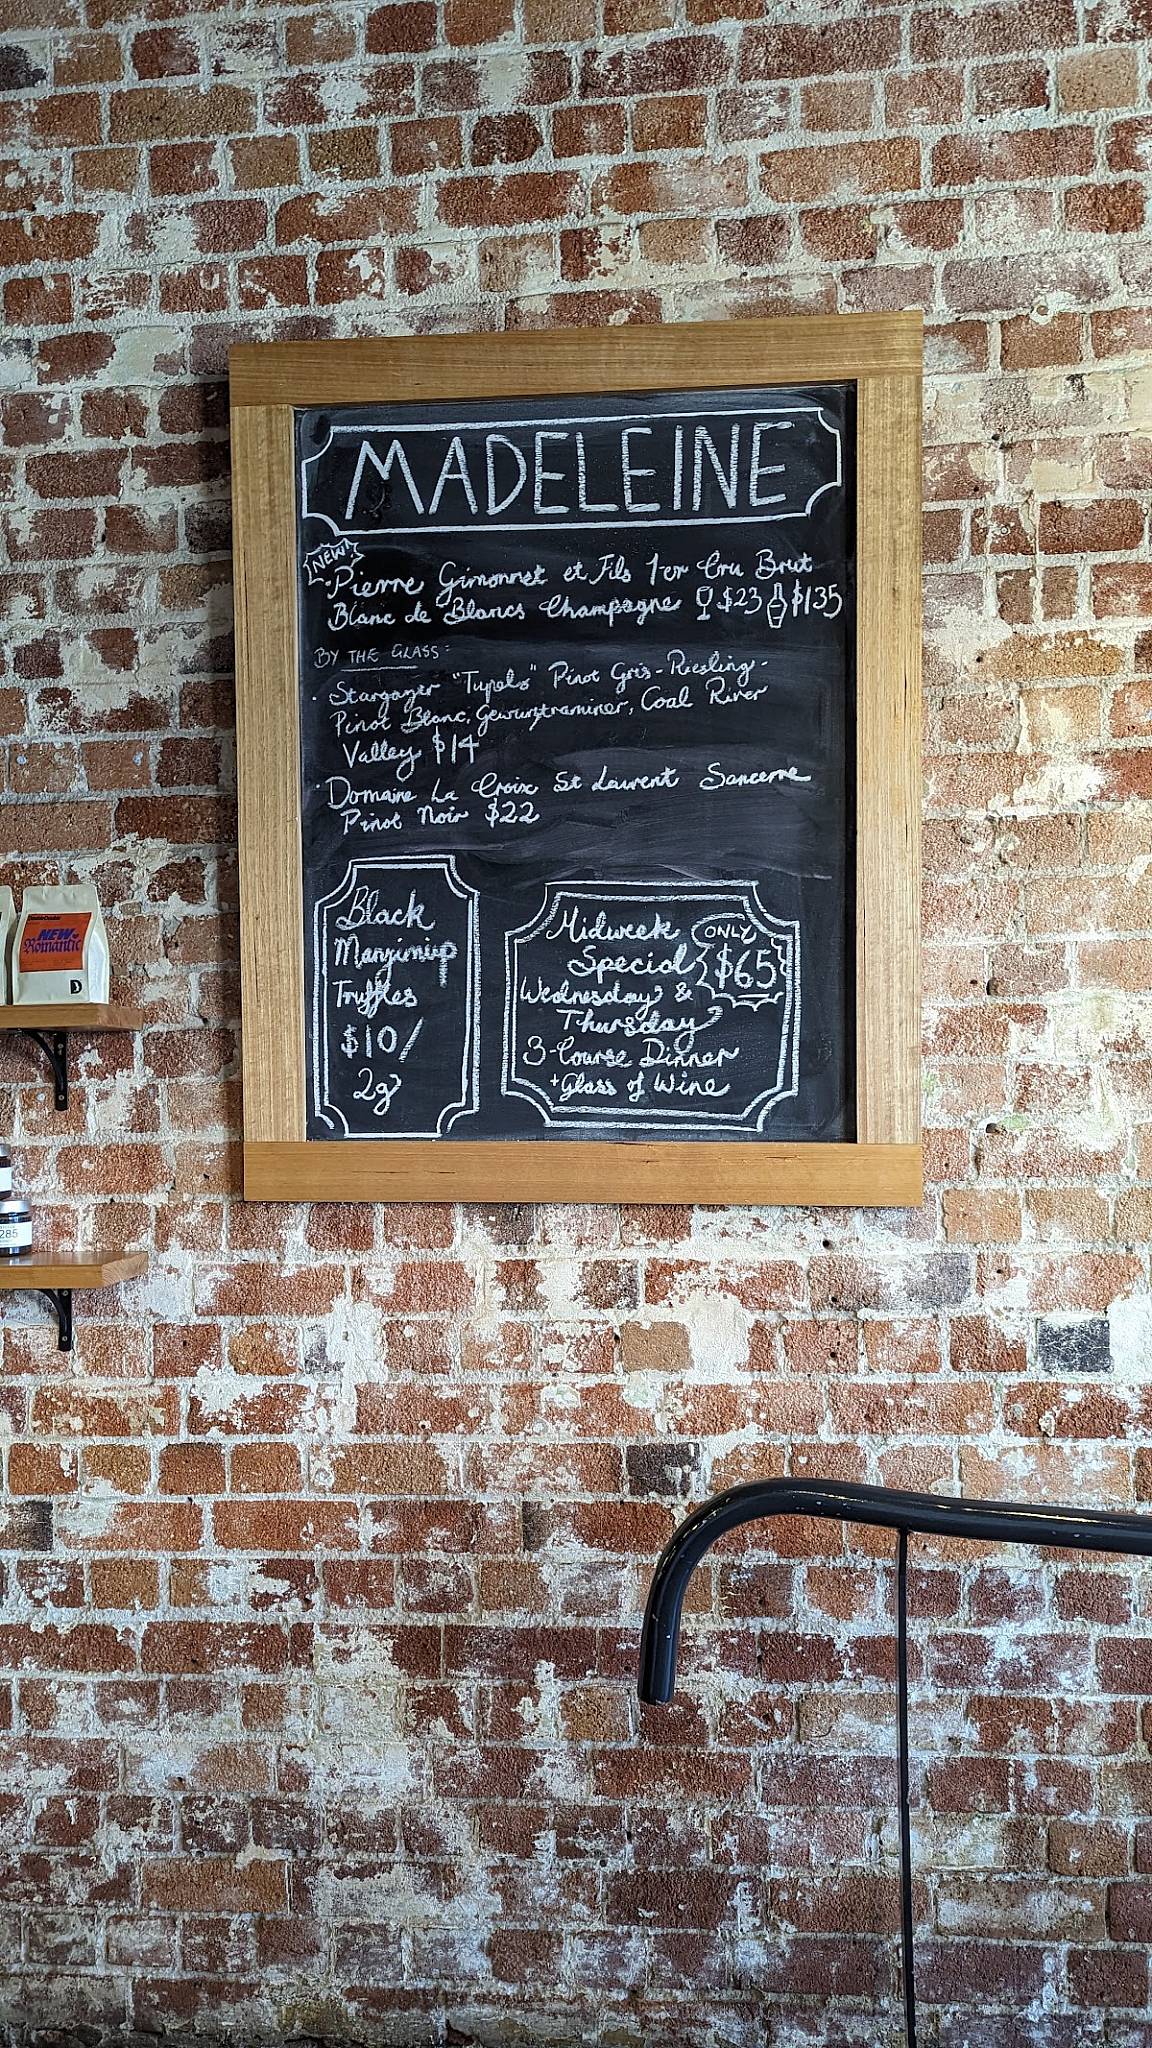 MADELEINE
NEW!
Pierre Gimonnet et Fils 1er Cru Brut
Blanc de Blancs Champagne $23 $135
BY THE GLASS:
· Stargazer "Tupelo" Pinot Gris - Riesling -
Pinot Blanc, Gewurztraminer, Coal River
Valley $14
· Domaine La Croix St Laurent Sancerre
Pinot Noir $22
Black
Manjimup
Truffles
$10/
2g
Midweek
Special
ONLY
$65
Wednesday &
Thursday
3-Course Dinner
+Glass of Wine
NEW
Romantic
285